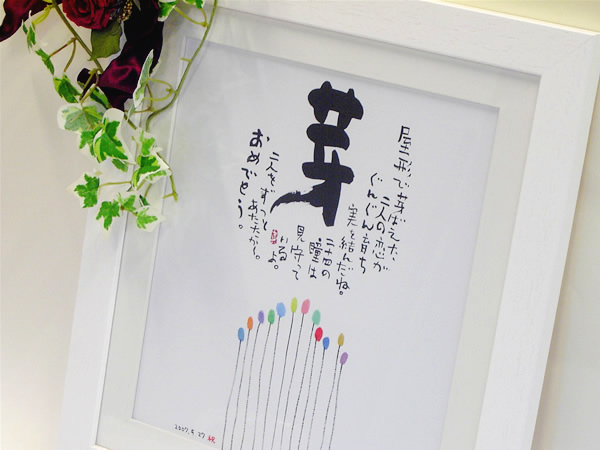 芽
屋形で芽ばえた、
二人の恋が
ぐんぐん育ち
実を結んだね。
二十四の
瞳は
見守って
いるよ。
二人をずっと
あたたかく。
おめでとう。
2007.4.27 祝